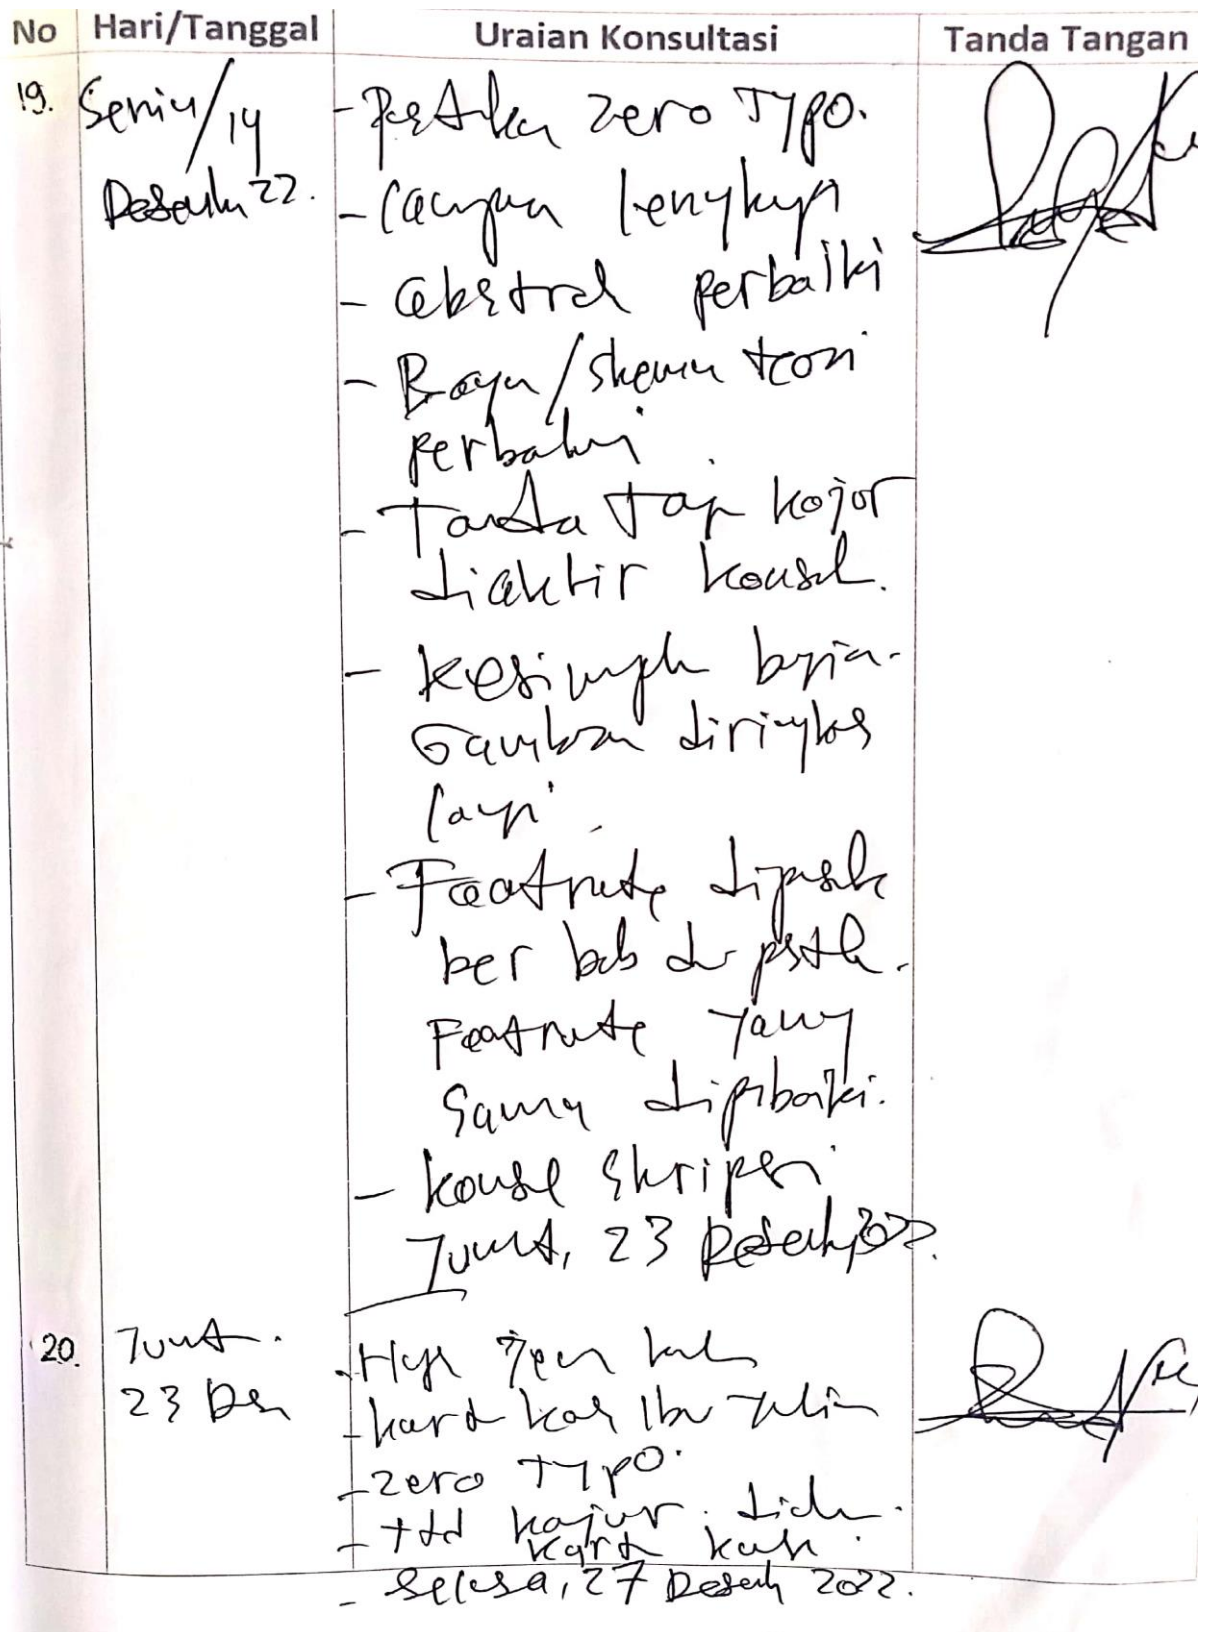 No Hari/Tanggal Uraian Konsultasi Tanda Tangan
19. Senin/19 - Pastikan zero Typo.
Desember 22. - Lampiran lengkapi
- abstrak perbaiki
- Bagan/skema teori
perbaiki
- Tanda tangan kajur
diakhir konsul.
- Kesimpulan
Gambaran diringkas
lagi
- Footnote dipisah
per bab dan pastikan
Footnote yang
sama diperbaiki.
- konsul skripsi
Jumat, 23 Desember 2022.
20. Jumat.
23 Des
- kartu Ibu
- zero TYPO.
- ttd kajur.
kartu
- Selasa, 27 Desember 2022.